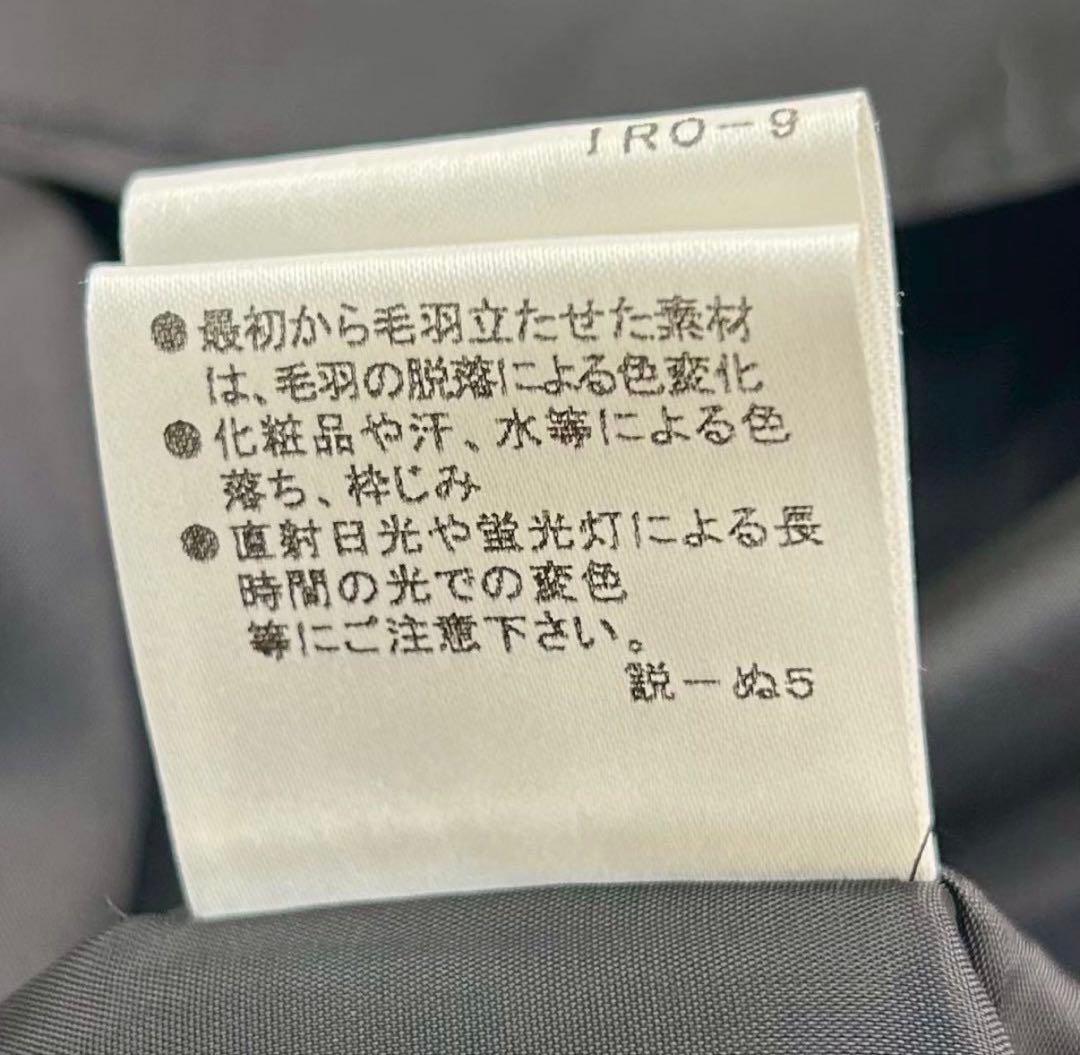 IRO-9
●最初から毛羽立たせた素材
は、毛羽の脱落による色変化
●化粧品や汗、水等による色
落ち、枠じみ
●直射日光や蛍光灯による長
時間の光での変色
等にご注意下さい。
説-ぬ5